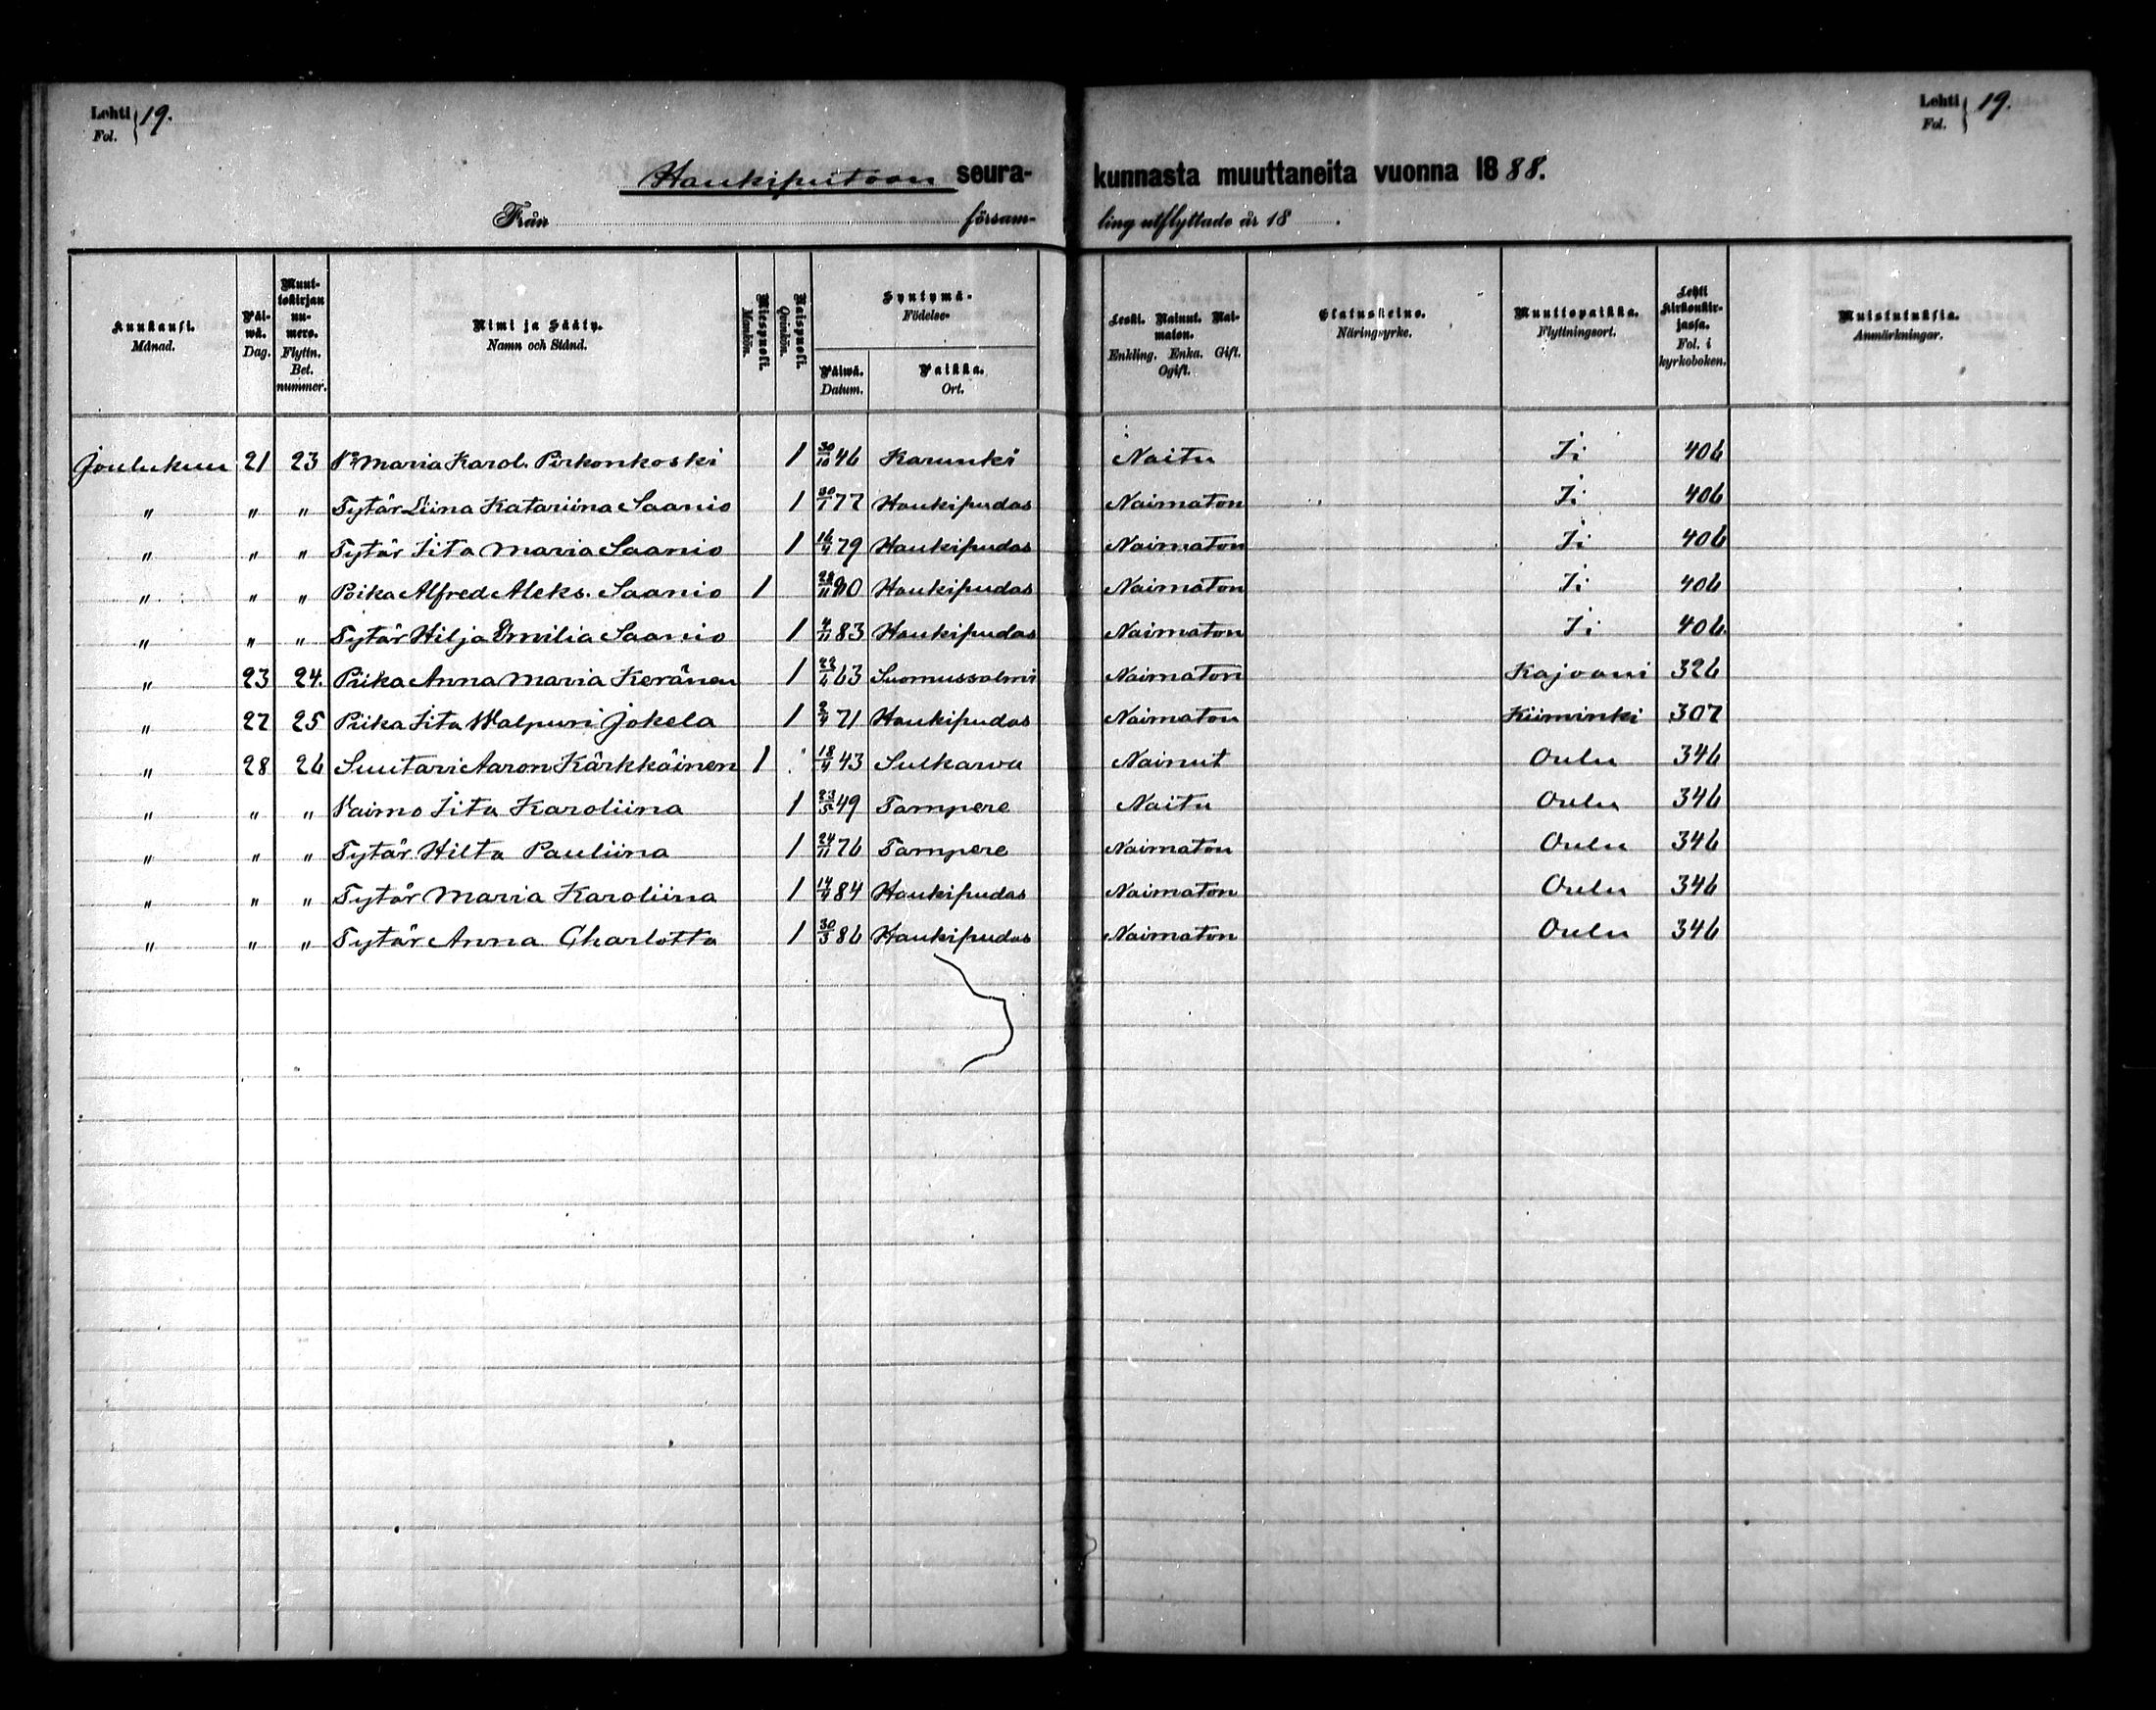 Lehti Fol. } 19.
Lehti Fol. } 19.
Haukiputoan seura- kunnasta muuttaneita vuonna 1888.
Från försam- ling utflyttade år 18 .
Kuukausi. Månad. | Päi-wä. Dag. | Muut-tokirjan nu-mero. Flyttn. Bet. nummer. | Nimi ja Sääty. Namn och Stånd. | Miespuoli. Mankön. | Naispuoli. Qvinkön. | Syntymä- Födelse- Päiwä. Datum. | Paikka. Ort. | Leski. Nainut. Nai-maton. Enkling. Enka. Gift. Ogift. | Elatuskeino. Näringsyrke. | Muuttopaikka. Flyttningsort. | Lehti kirkonkir-jassa. Fol. i kyrkoboken. | Muistutuksia. Anmärkningar.
Joulukuu 21 23 Maria Karol. Pirkonkoski 1 30/10 46 Karunki Naitu Ii 406
" " " Tytär Liina Katariina Saanio 1 30/1 77 Haukipudas Naimaton Ii 406
" " " Tytär Iita Maria Saanio 1 16/4 79 Haukipudas Naimaton Ii 406
" " " Poika Alfred Aleks. Saanio 1 80 Haukipudas Naimaton Ii 406
" " " Tytär Hilja Emilia Saanio 1 4/11 83 Haukipudas Naimaton Ii 406
" 23 24. Piika Anna Maria Keränen 1 63 Suomussalmi Naimaton Kajaani 326
" 27 25 Piika Iita Walpuri Jokela 1 2/4 71 Haukipudas Naimaton Kiiminki 307
" 28 26 Suutari Aaron Kärkkäinen 1 18/4 43 Sulkawa Nainut Oulu 346
" " " Vaimo Iita Karoliina 1 23/5 49 Tampere Naitu Oulu 346
" " " Tytär Hilta Pauliina 1 24/11 76 Tampere Naimaton Oulu 346
" " " Tytär Maria Karoliina 1 14/4 84 Haukipudas Naimaton Oulu 346
" " " Tytär Anna Charlotta 1 30/3 86 Haukipudas Naimaton Oulu 346